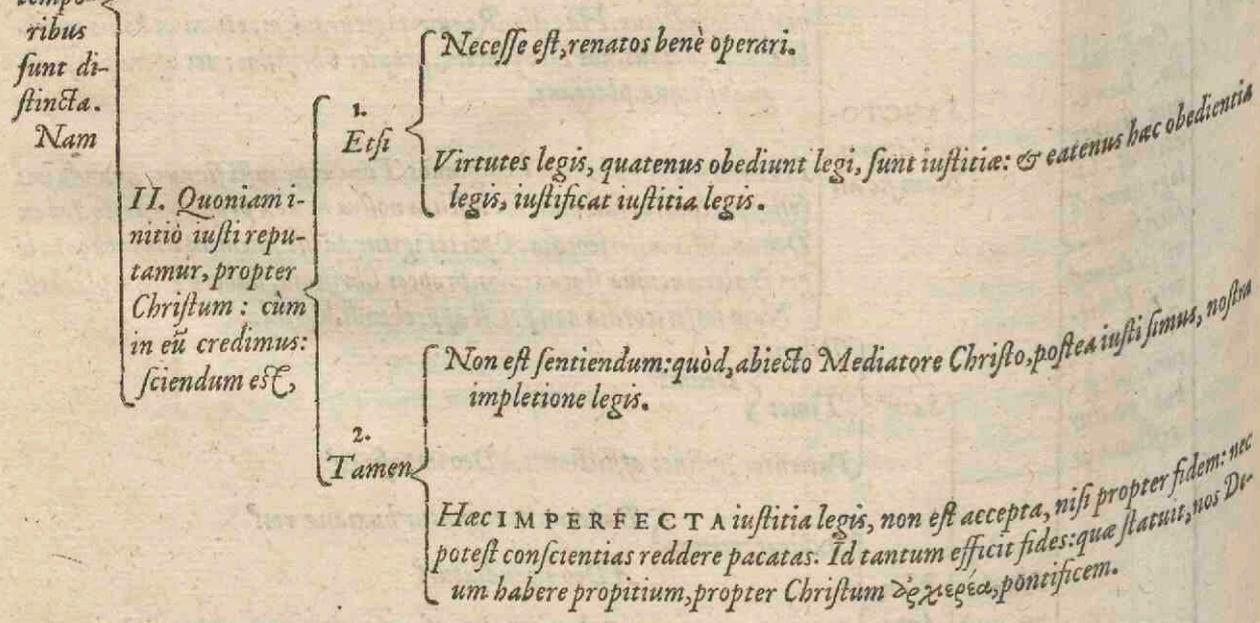 ribus
ſunt di-
ſtincta.
Nam
II. Quoniam i-
nitiò iuſti repu-
tamur, propter
Chriſtum : cùm
in eũ credimus:
ſciendum eſt,
1.
Etſi
Neceſſe eſt, renatos benè operari.
Virtutes legis, quatenus obediunt legi, ſunt iuſtitiæ: & eatenus hæc obedientia
legis, iuſtificat iuſtitia legis.
2.
Tamen
Non eſt ſentiendum: quòd, abiecto Mediatore Chriſto, poſtea iuſti ſimus, noſtra
impletione legis.
Hæc IMPERFECTA iuſtitia legis, non eſt accepta, niſi propter fidem: nec
poteſt conſcientias reddere pacatas. Id tantum efficit fides: quæ ſtatuit, nos De-
um habere propitium, propter Chriſtum ἀρχιερέα, pontificem.